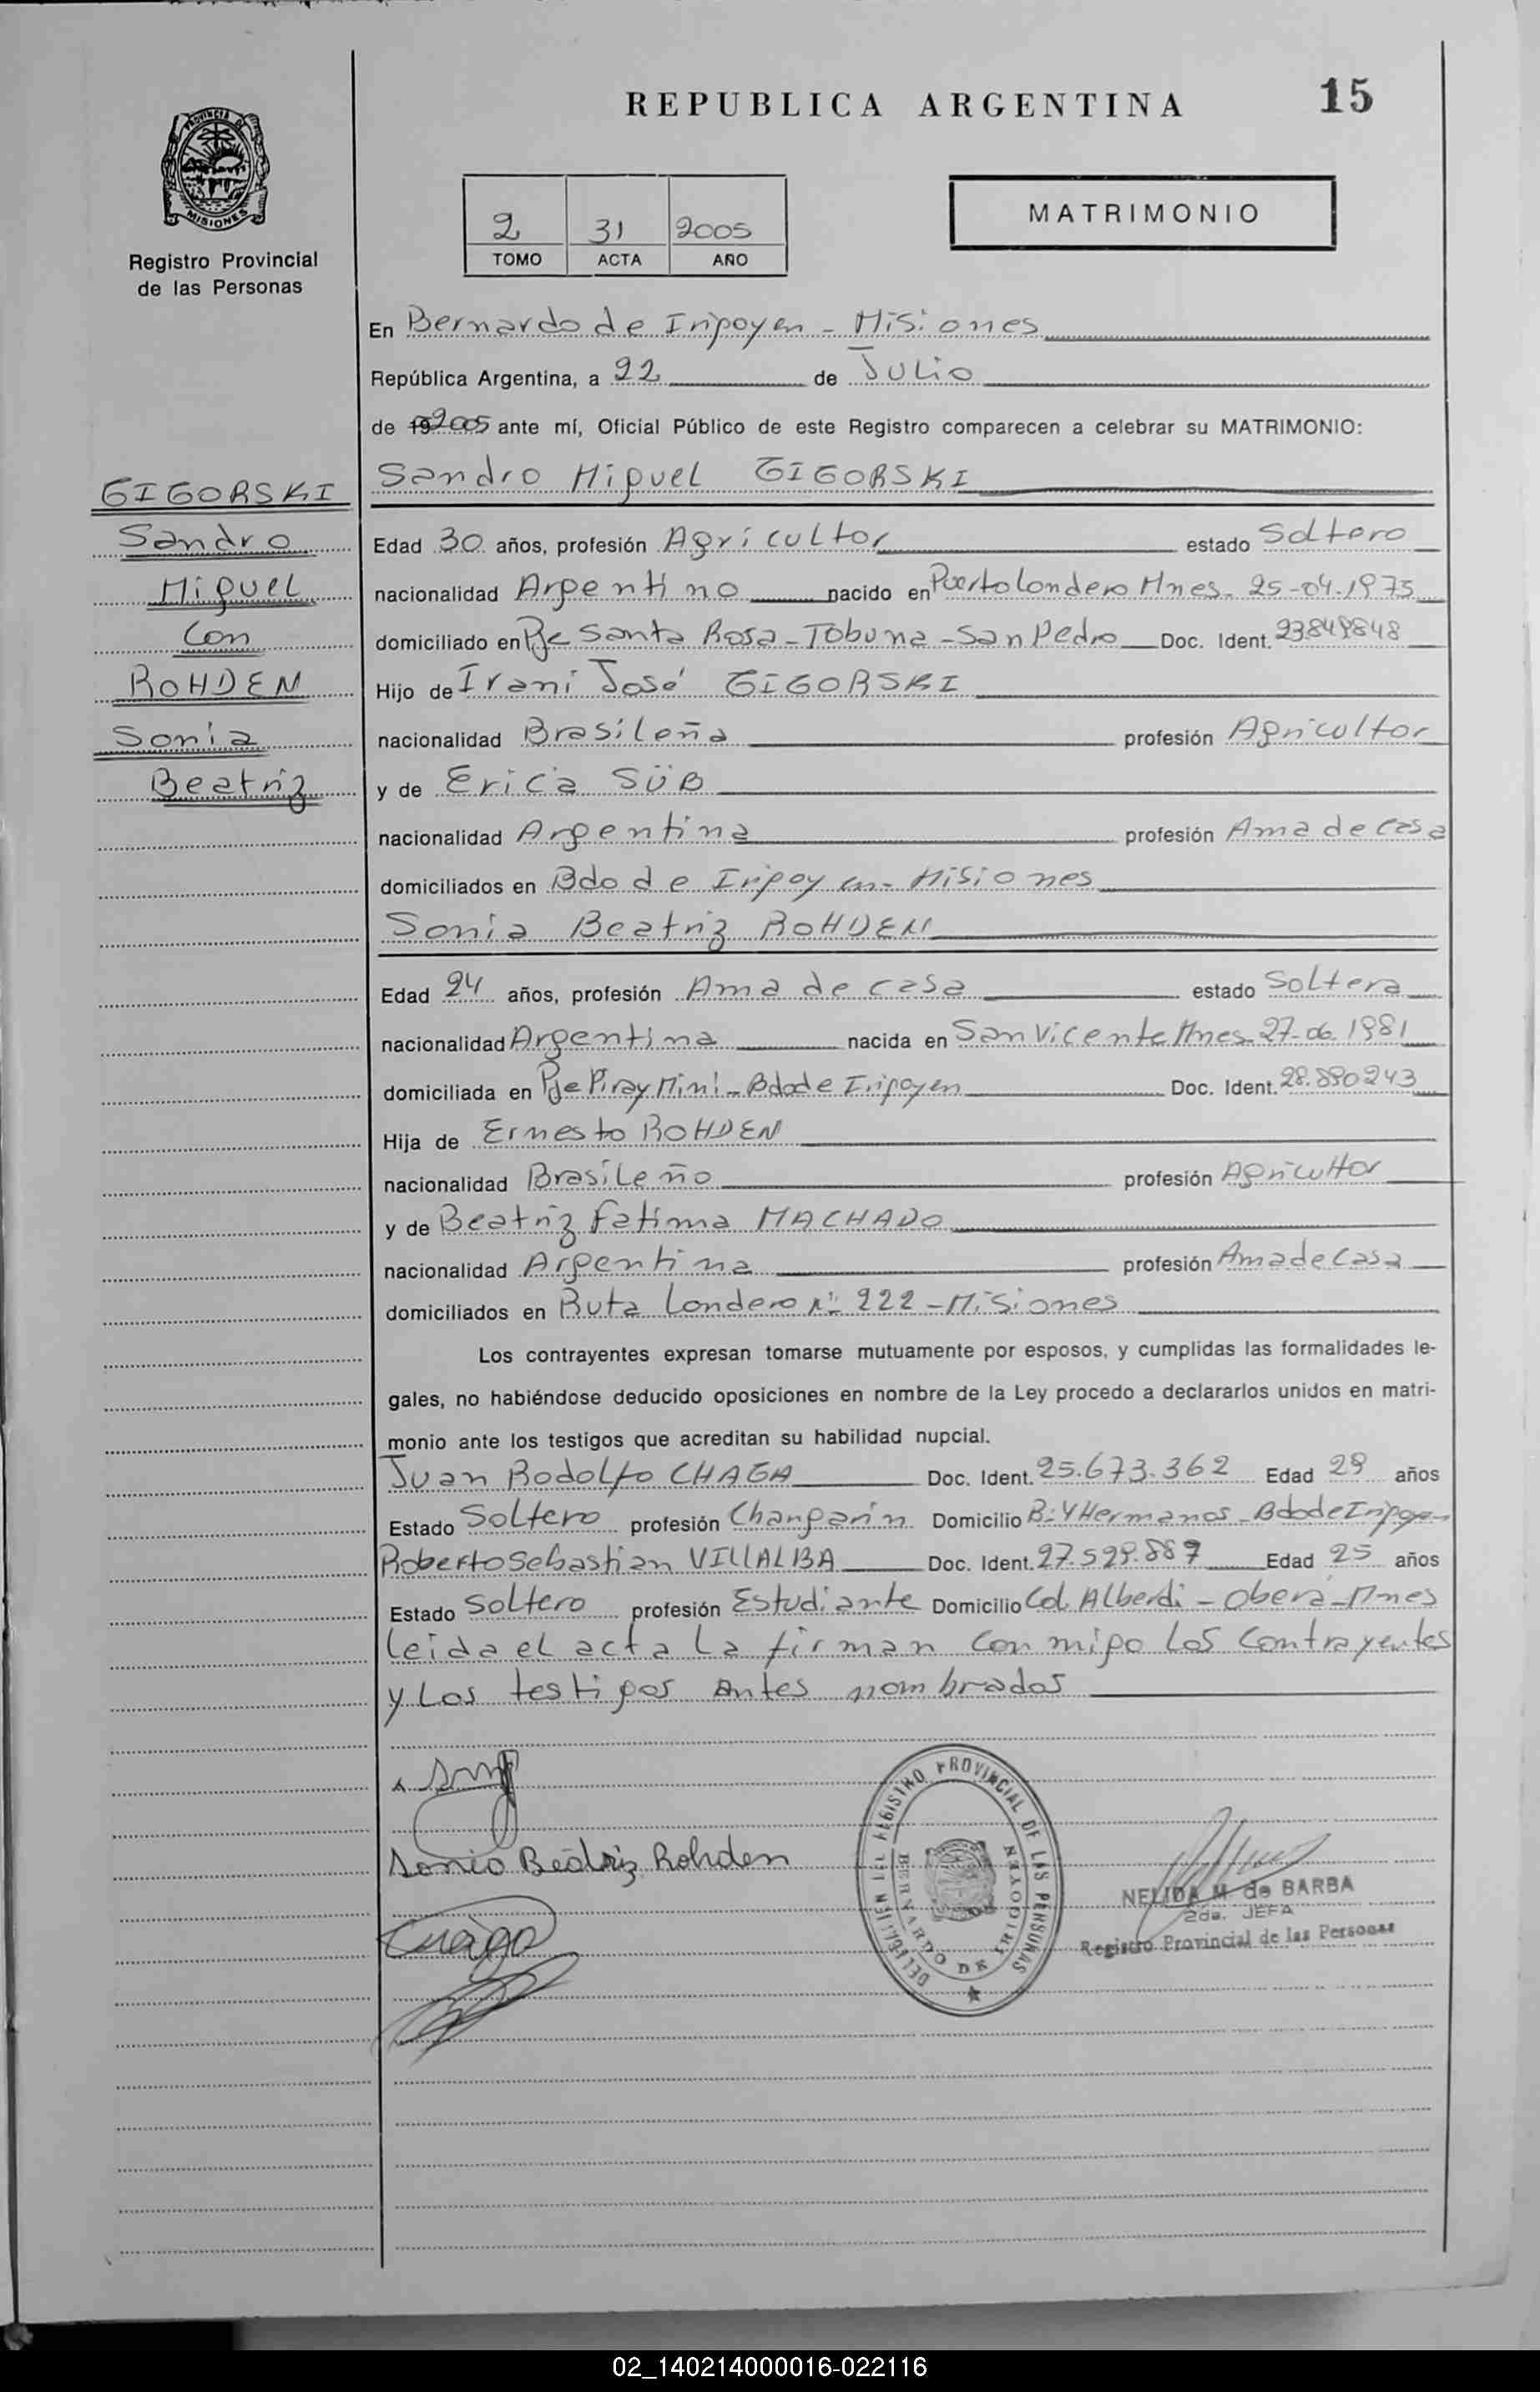 REPUBLICA ARGENTINA
15
PROVINCIA DE
MISIONES
Registro Provincial
de las Personas
2 31 2005
TOMO ACTA AÑO
MATRIMONIO
En Bernardo de Irigoyen - Misiones
República Argentina, a 22 de Julio
de 19 2005 ante mí, Oficial Público de este Registro comparecen a celebrar su MATRIMONIO:
GIGORSKI
Sandro
Miguel
Con
ROHDEN
Sonia
Beatriz
Sandro Miguel GIGORSKI
Edad 30 años, profesión Agricultor estado Soltero
nacionalidad Argentino nacido en Puerto Londero Mnes - 25-04-1975
domiciliado en Pje Santa Rosa - Tobuna - San Pedro Doc. Ident.
Hijo de Irani José GIGORSKI
nacionalidad Brasileña profesión Agricultor
y de Erica SÜB
nacionalidad Argentina profesión Ama de casa
domiciliados en Bdo de Irigoyen - Misiones
Sonia Beatriz ROHDEN
Edad 24 años, profesión Ama de casa estado Soltera
nacionalidad Argentina nacida en San Vicente Mnes - 27-06-1981
domiciliada en Pje Piray Mini - Bdo de Irigoyen Doc. Ident. 28.880243
Hija de Ernesto ROHDEN
nacionalidad Brasileño profesión Agricultor
y de Beatriz Fatima MACHADO
nacionalidad Argentina profesión Ama de Casa
domiciliados en Ruta Londero Nº 222 - Misiones
Los contrayentes expresan tomarse mutuamente por esposos, y cumplidas las formalidades le-
gales, no habiéndose deducido oposiciones en nombre de la Ley procedo a declararlos unidos en matri-
monio ante los testigos que acreditan su habilidad nupcial.
Juan Rodolfo CHAGA Doc. Ident. 25.673.362 Edad 29 años
Estado Soltero profesión Changarín Domicilio Bº Y Hermanos - Bdo de Irigoyen
Roberto Sebastian VILLALBA Doc. Ident. 27.529.887 Edad 25 años
Estado Soltero profesión Estudiante Domicilio Col. Alberdi - Oberá - Mnes
Leida el acta la firman conmigo los contrayentes
y los testigos antes nombrados
Sonia Beatriz Rohden
Chaga
REGISTRO PROVINCIAL DE LAS PERSONAS
BERNARDO DE IRIGOYEN
NELIDA M. de BARBA
2da. JEFA
Registro Provincial de las Personas
02_140214000016-022116